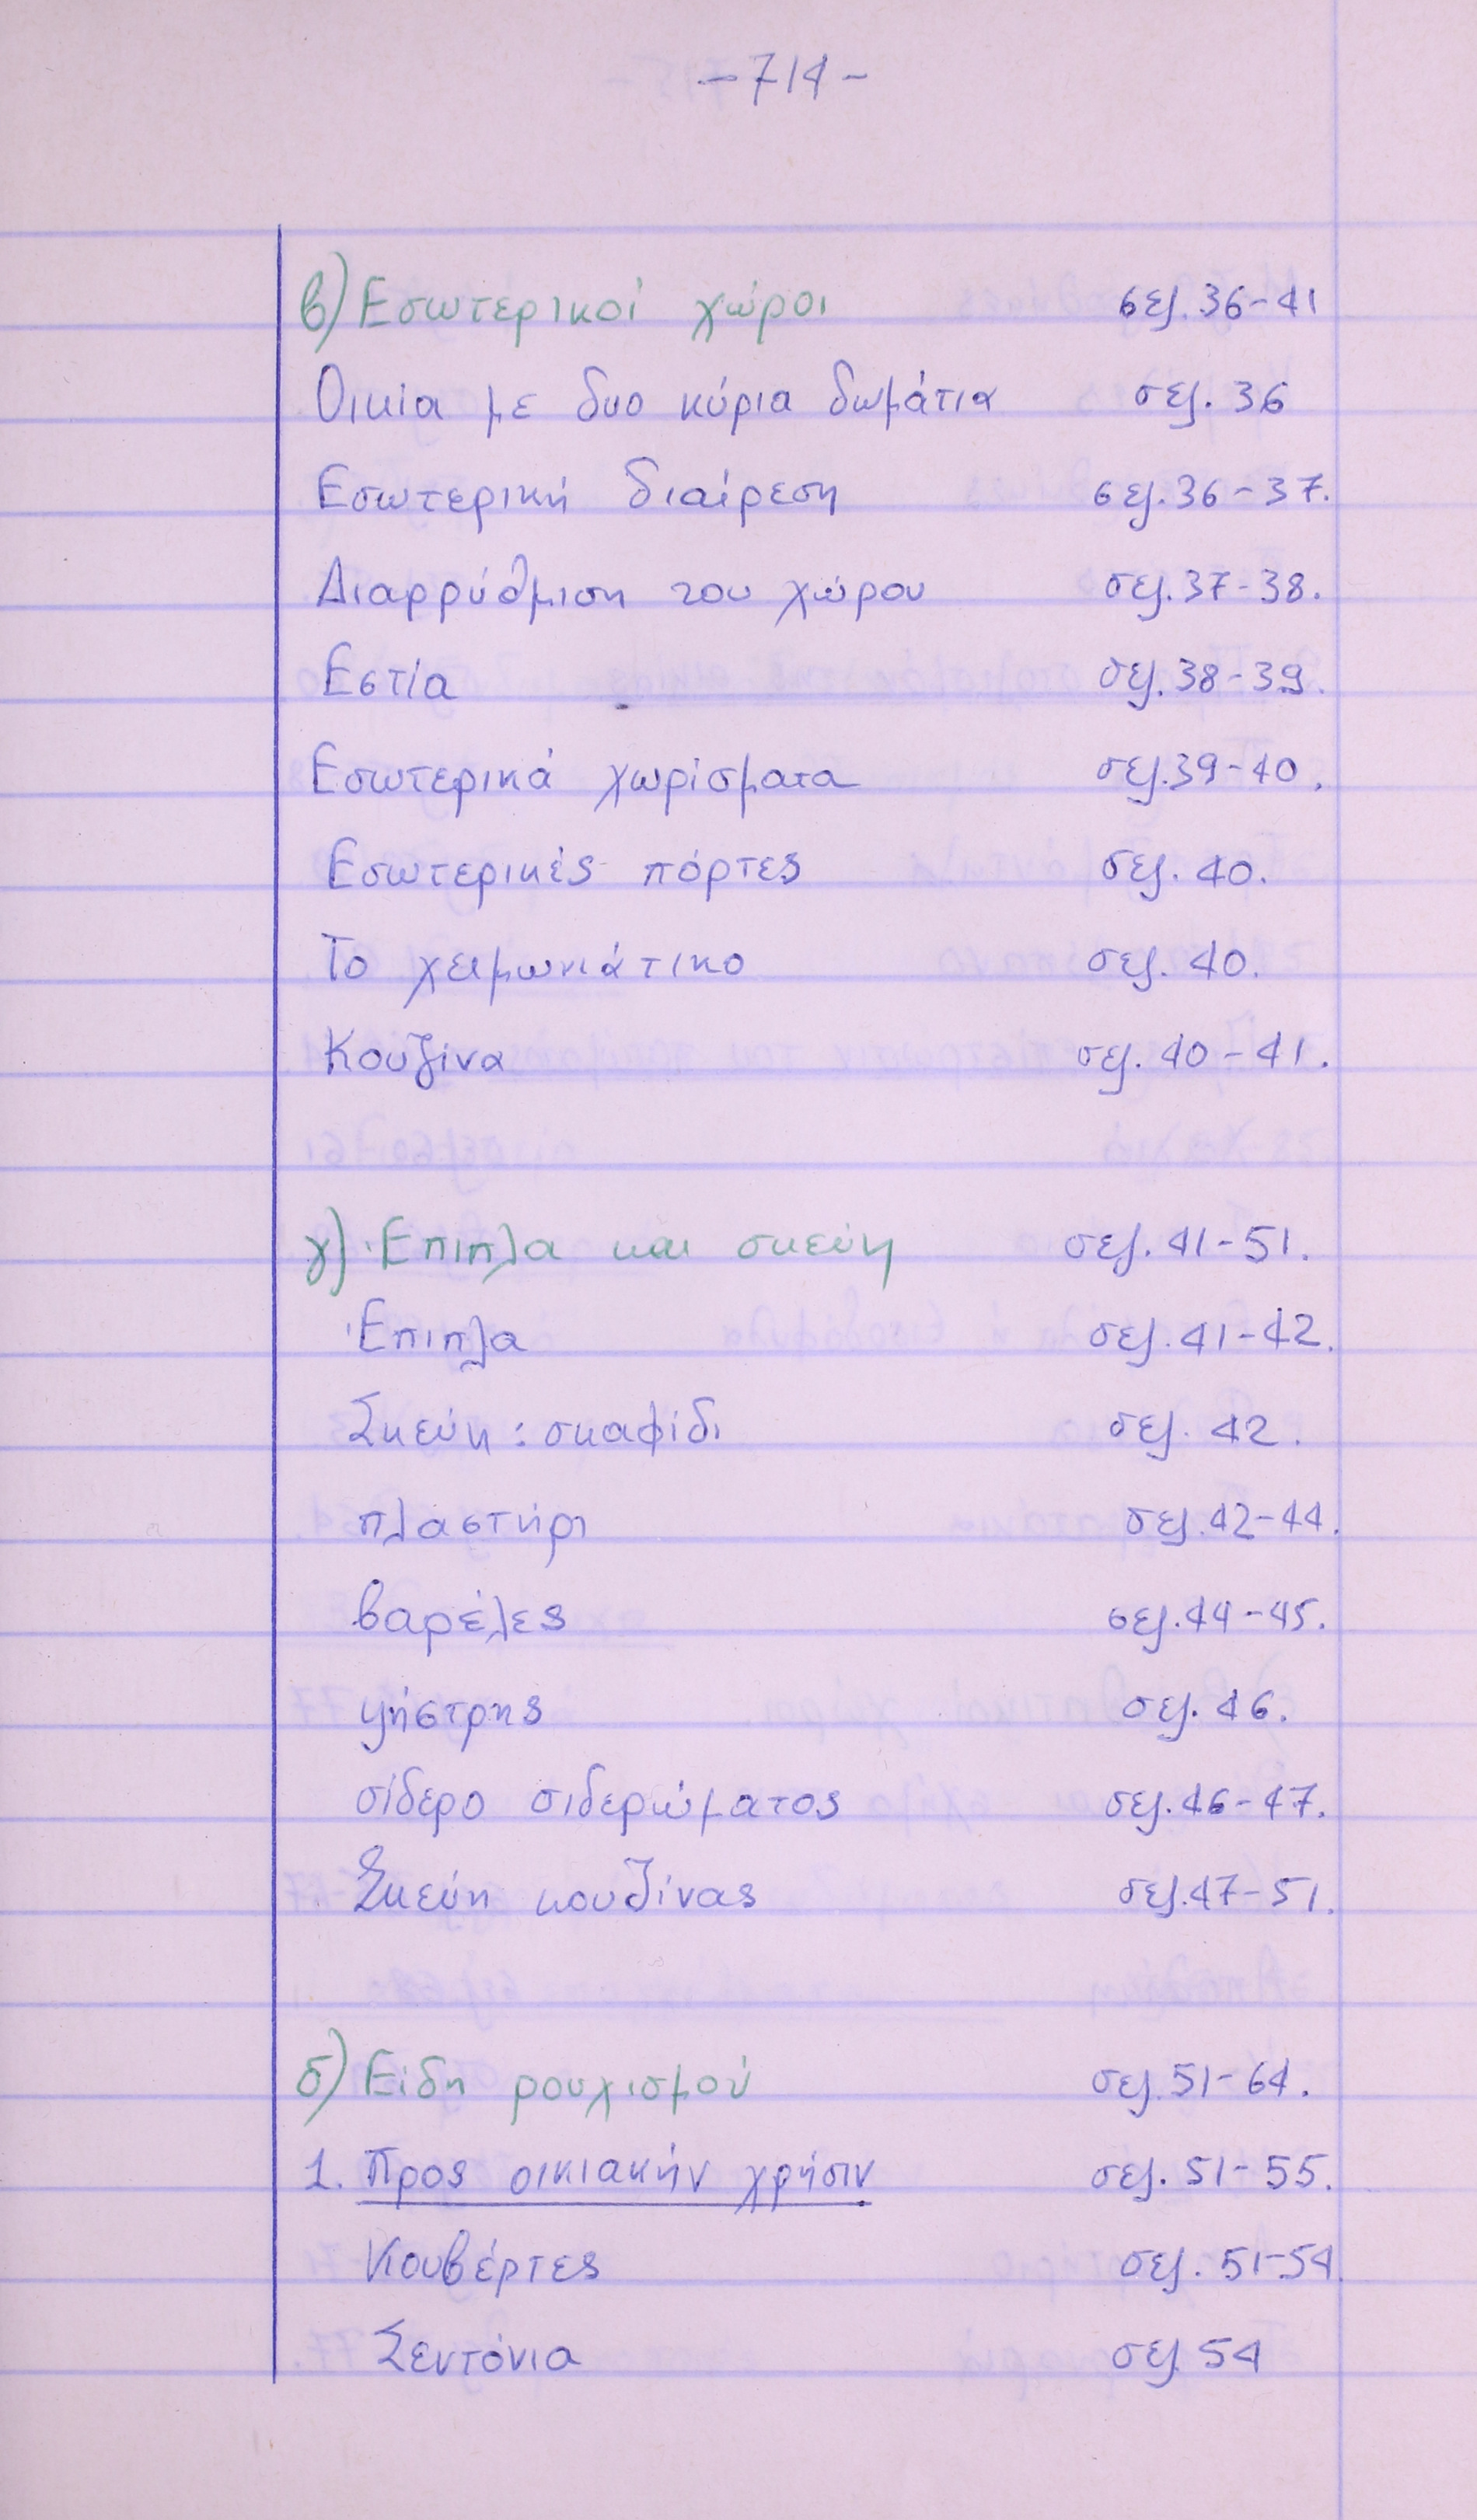 -714-
β) Εσωτερικοί χώροι σελ. 36-41
Οικία με δυο κύρια δωμάτια σελ. 36
Εσωτερική διαίρεση σελ. 36-37.
Διαρρύθμιση του χώρου σελ. 37-38.
Εστία σελ. 38-39.
Εσωτερικά χωρίσματα σελ. 39-40.
Εσωτερικές πόρτες σελ. 40.
Το χειμωνιάτικο σελ. 40.
Κουζίνα σελ. 40-41.
γ) Έπιπλα και σκεύη σελ. 41-51.
Έπιπλα σελ. 41-42.
Σκεύη: σκαφίδι σελ. 42.
πλαστήρι σελ. 42-44.
βαρέλες σελ. 44-45.
ψήστρης σελ. 46.
σίδερο σιδερώματος σελ. 46-47.
Σκεύη κουζίνας σελ. 47-51.
δ) Είδη ρουχισμού σελ. 51-64.
1. Προς οικιακήν χρήσιν σελ. 51-55.
Κουβέρτες σελ. 51-54.
Σεντόνια σελ. 54